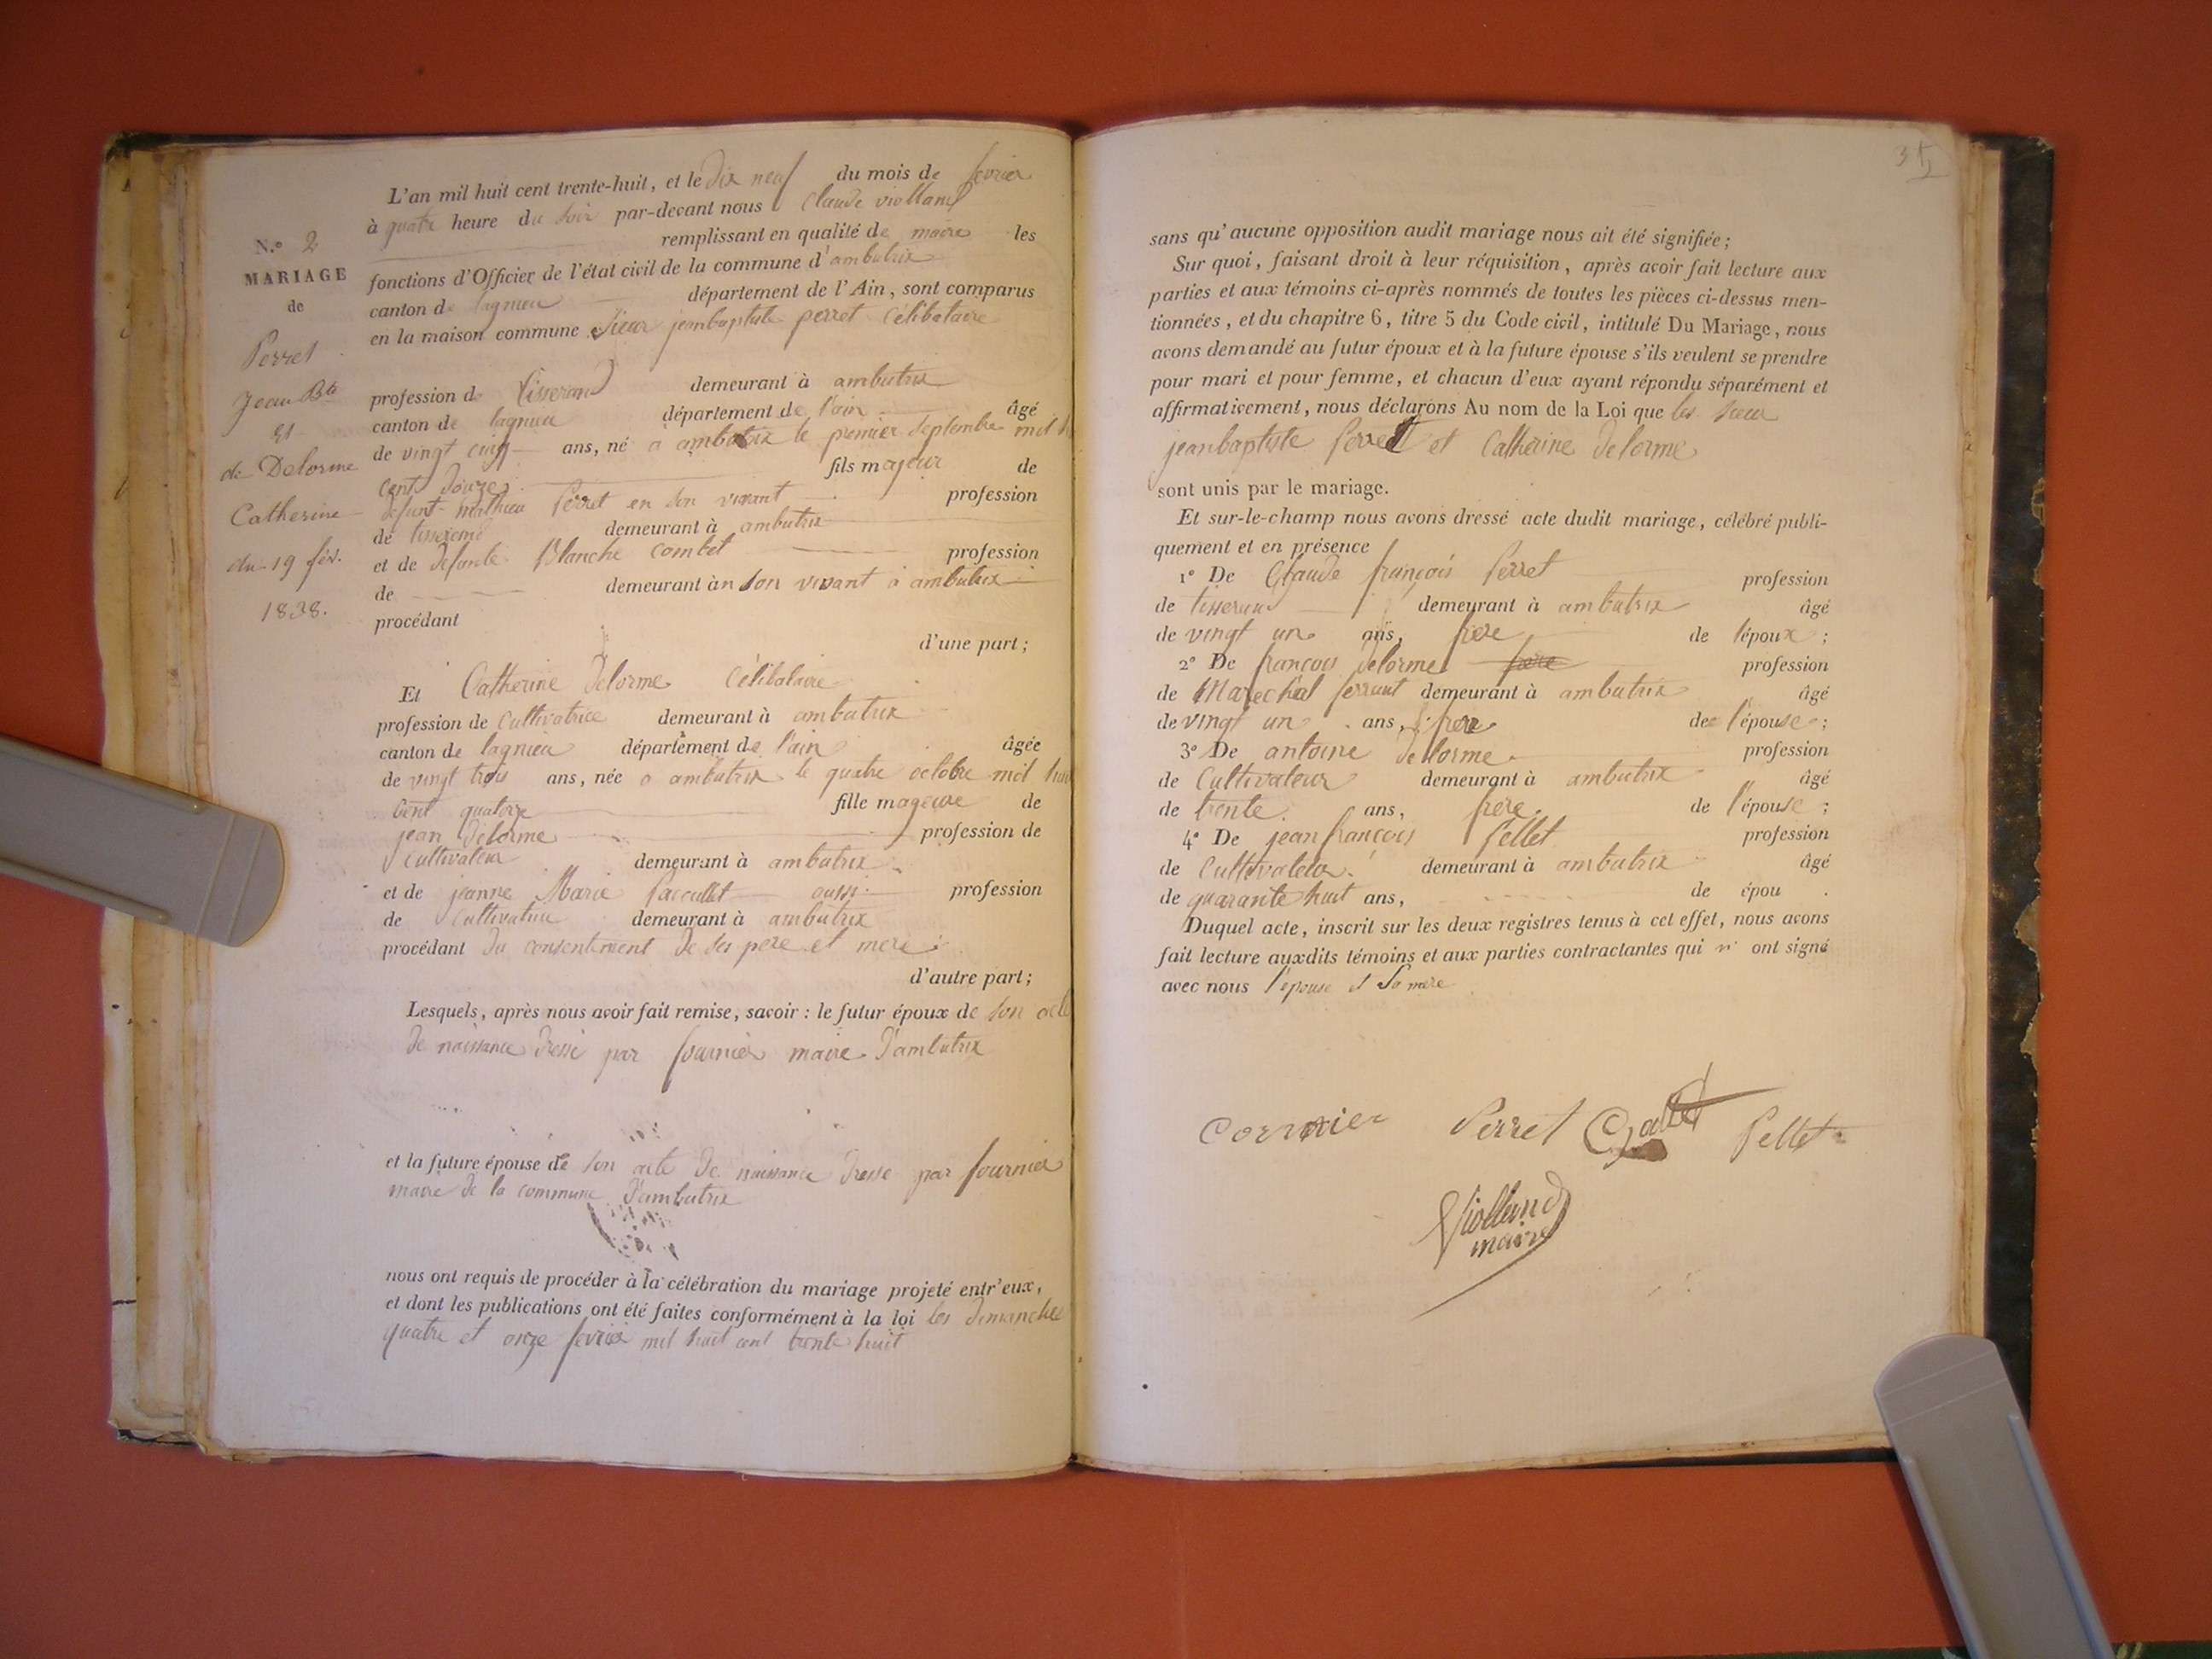 N.º 2
MARIAGE
de
Perret
Jean Bte
et
de Delorme
Catherine
du 19 fév.
1838.
L'an mil huit cent trente-huit, et le dix neuf du mois de fevrier
à quatre heure du soir par-devant nous Claude violland
remplissant en qualité de maire les
fonctions d'Officier de l'état civil de la commune d'ambutrix
canton de lagnieu département de l'Ain, sont comparus
en la maison commune Sieur jeanbaptiste perret Célibataire
profession de tisserand demeurant à ambutrix
canton de lagnieu département de l'ain âgé
de vingt cinq ans, né a ambutrix le premier Septembre mil h
cent douze fils majeur de
defunt mathieu Perret en son vivant profession
de tisserand demeurant à ambutrix
et de defunte Blanche combet profession
de demeurant àn son vivant a ambutrix
procédant
d'une part;
Et Catherine Delorme Célibataire
profession de Cultivatrice demeurant à ambutrix
canton de lagnieu département de l'ain âgée
de vingt trois ans, née a ambutrix le quatre octobre mil hui
Cent quatorze fille mageure de
jean Delorme profession de
Cultivateur demeurant à ambutrix
et de jeanne Marie aussi profession
de Cultivatrice demeurant à ambutrix
procédant du consentement de ses pere et mere
d'autre part;
Lesquels, après nous avoir fait remise, savoir : le futur époux de son acte
de naissance dressé par fournier maire d'ambutrix
et la future épouse de son acte de naissance dresse par fournier
maire de la commune d'ambutrix
nous ont requis de procéder à la célébration du mariage projeté entr'eux,
et dont les publications ont été faites conformément à la loi les dimanche
quatre et onze fevrier mil huit cent trente huit
sans qu'aucune opposition audit mariage nous ait été signifiée;
Sur quoi, faisant droit à leur réquisition, après avoir fait lecture aux
parties et aux témoins ci-après nommés de toutes les pièces ci-dessus men-
tionnées, et du chapitre 6, titre 5 du Code civil, intitulé Du Mariage, nous
avons demandé au futur époux et à la future épouse s'ils veulent se prendre
pour mari et pour femme, et chacun d'eux ayant répondu séparément et
affirmativement, nous déclarons Au nom de la Loi que les
jeanbaptiste Perret et Catherine Delorme
sont unis par le mariage.
Et sur-le-champ nous avons dressé acte dudit mariage, célébré publi-
quement et en présence
1º De Claude françois Perret profession
de tisserand demeurant à ambutrix âgé
de vingt un ans, frere de l'époux ;
2º De françois Delorme frere profession
de Marechal ferrant demeurant à ambutrix âgé
de vingt un ans, frere de l'épouse ;
3º De antoine dellorme profession
de Cultivateur demeurant à ambutrix âgé
de trente ans, frere de l'épouse ;
4º De jean françois Pellet profession
de Cultivateur demeurant à ambutrix âgé
de quarante huit ans, de épou .
Duquel acte, inscrit sur les deux registres tenus à cet effet, nous avons
fait lecture auxdits témoins et aux parties contractantes qui n' ont signé
avec nous l'épouse et Sa mere
Cornier Perret Pellet
Violland
maire